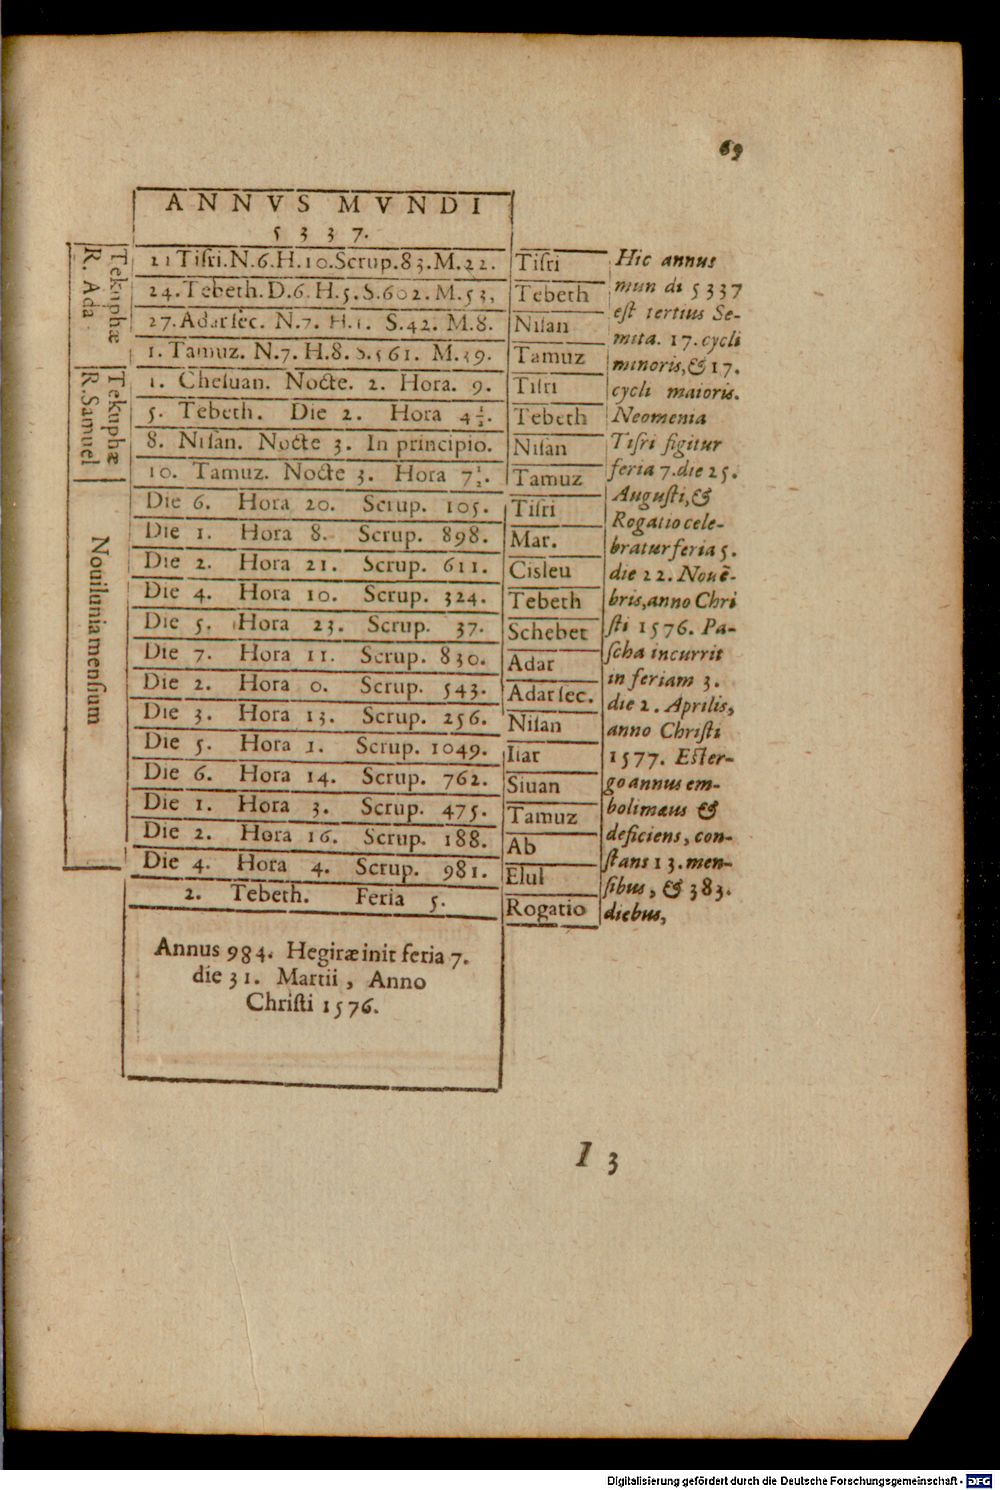 69
ANNVS MVNDI
5337.
Tekuphæ
R. Ada.
21 Tiſri. N. 6. H. 10. Scrup. 83. M. 22. Tiſri
24. Tebeth. D. 6. H. 5. S. 602. M. 53, Tebeth
27. Adar ſec. N. 7. H. 1. S. 42. M. 8. Niſan
1. Tamuz. N. 7. H. 8. S. 561. M. 39. Tamuz
Tekuphæ
R. Samuel
1. Cheſuan. Nocte. 2. Hora. 9. Tiſri
5. Tebeth. Die 2. Hora 4 ½. Tebeth
8. Niſan. Nocte 3. In principio. Niſan
10. Tamuz. Nocte 3. Hora 7½. Tamuz
Nouilunia menſium
Die 6. Hora 20. Scrup. 105. Tiſri
Die 1. Hora 8. Scrup. 898. Mar.
Die 2. Hora 21. Scrup. 611. Ciſleu
Die 4. Hora 10. Scrup. 324. Tebeth
Die 5. Hora 23. Scrup. 37. Schebet
Die 7. Hora 11. Scrup. 830. Adar
Die 2. Hora 0. Scrup. 543. Adar ſec.
Die 3. Hora 13. Scrup. 256. Niſan
Die 5. Hora 1. Scrup. 1049. Iiar
Die 6. Hora 14. Scrup. 762. Siuan
Die 1. Hora 3. Scrup. 475. Tamuz
Die 2. Hora 16. Scrup. 188. Ab
Die 4. Hora 4. Scrup. 981. Elul
2. Tebeth. Feria 5. Rogatio
Annus 984. Hegiræ init feria 7.
die 31. Martii, Anno
Chriſti 1576.
Hic annus
mundi 5337
eſt tertius Se-
mita. 17. cycli
minoris, & 17.
cycli maioris.
Neomenia
Tiſri figitur
feria 7. die 25.
Auguſti, &
Rogatio cele-
bratur feria 5.
die 22. Nouẽ-
bris, anno Chri
ſti 1576. Pa-
ſcha incurrit
in feriam 3.
die 2. Aprilis,
anno Chriſti
1577. Eſt er-
go annus em-
bolimæus &
deficiens, con-
ſtans 13. men-
ſibus, & 383.
diebus,
I 3
Digitalisierung gefördert durch die Deutsche Forschungsgemeinschaft - DFG